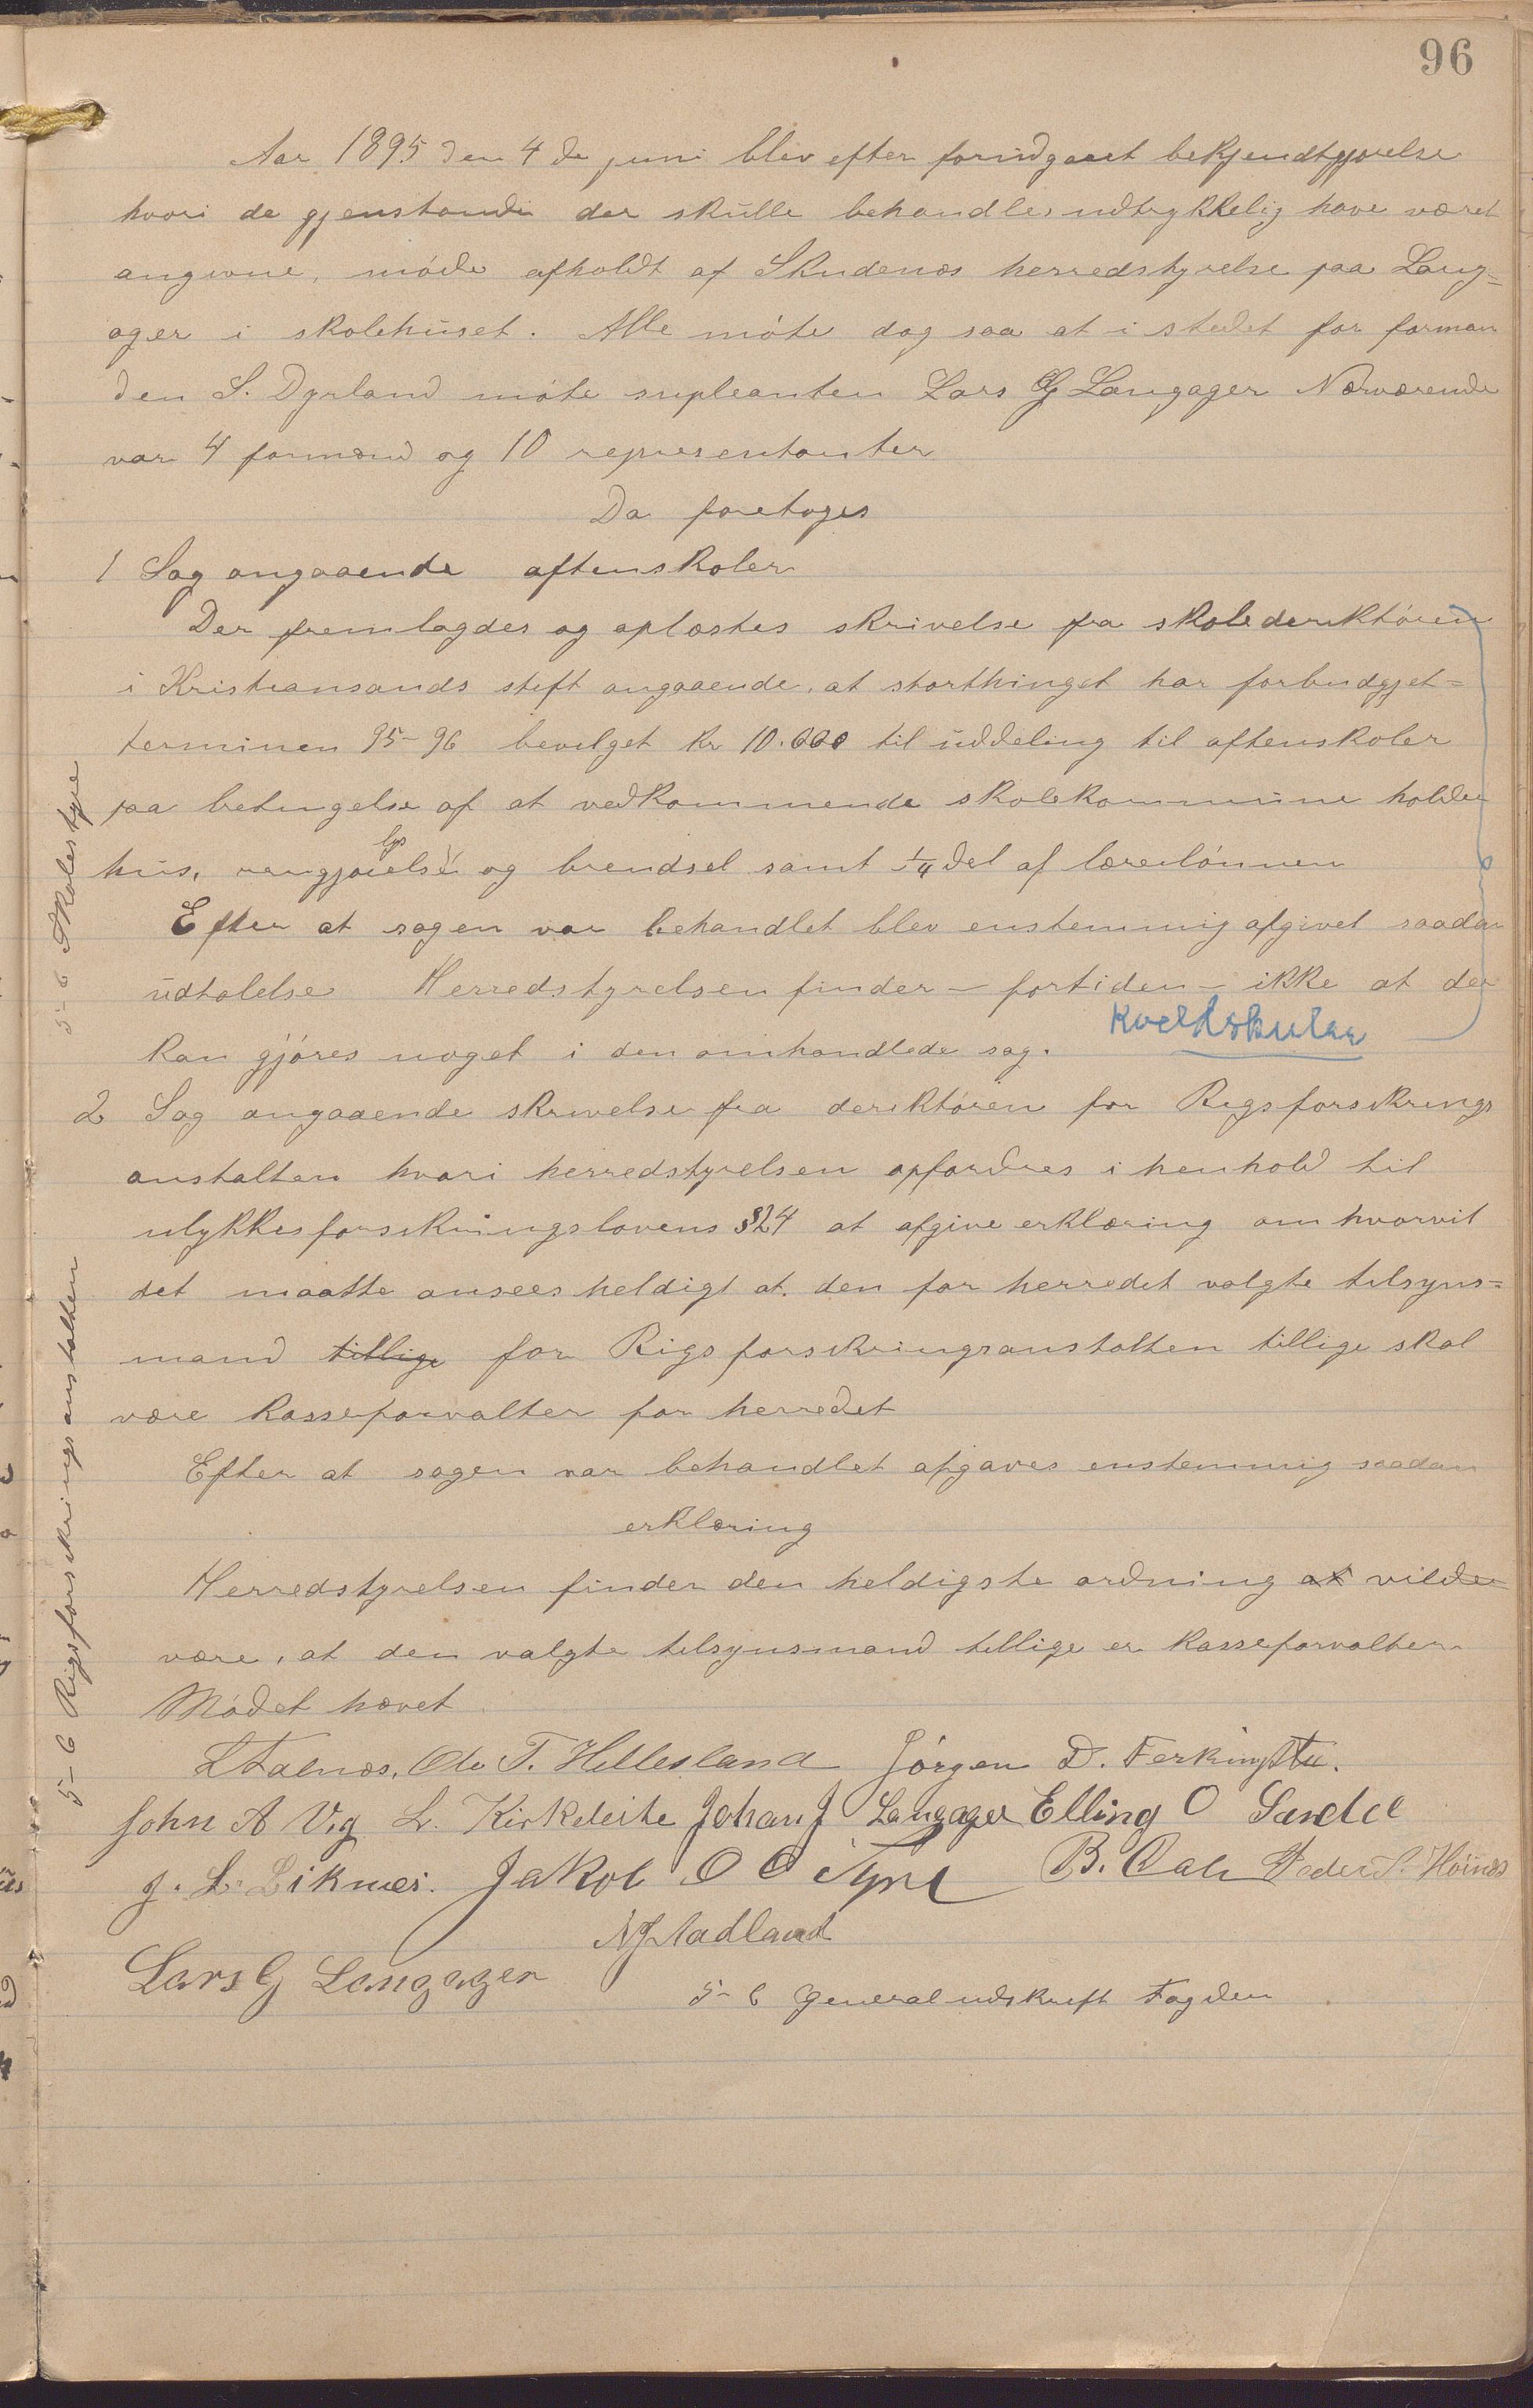 96
Aar 1895 den 4de juni blev efter forudgaaet bekjendtgjørelse
hvori de gjenstande der skulle behandles udtrykkelig have været
angivne, møde afholdt af Skudenæs herredstyrelse paa Lang=
ager i skolehuset. Alle møte dog saa at i stedet for forman
den S. Dyrland møte supleanten Lars G Langager Nærværende
var 4 formænd og 10 representanter
Da foretoges
1 Sag angaaende aftenskoler
Der fremlagdes og oplæstes skrivelse fra skolederiktøren
i Kristiansands stift angaaende, at storthinget har for budgjet=
terminen 95-96 bevilget Kr 10.000 til uddeling til aftenskoler
paa betingelse af at vedkommende skolekommune holder
hus, rengjørelse lys og brendsel samt 1/4 del af lærerlønnen
Efter at sagen var behandlet blev enstemmig afgivet saadan
udtalelse Herredstyrelsen finder - fortiden - ikke at der
kan gjøres noget i den omhandlede sag.
Kveldskular
2 Sag angaaende skrivelse fra deriktøren for Rigsforsikrings
anstalten hvori herredstyrelsen opfordres i henhold til
ulykkesforsikringslovens §24 at afgive erklæring om hvorvit
det maatte ansees heldigt at den for herredet valgte tilsyns=
mand tillige for Rigsforsikringsanstalten tillige skal
være kasseforvalter for herredet
Efter at sagen var behandlet afgaves enstemmig saadan
erklæring
Herredstyrelsen finder den heldigste ordning at vilde
være, at den valgte tilsynsmand tillige er kasseforvalter
Mødet hævet
L Falnæs, Ole T. Hillesland Jørgen D. Ferkingstu.
John A Vig L. Kirkeleite Johan J Langager Elling O Sandve
J. L. Liknes. Jakob O O Syre B. Dale Peder S. Høines
NJ Aadland
Lars G Langager
5-6 generaludskrift Fogden
5-6 Skolestyre
5-6 Rigsforsikringsanstalten